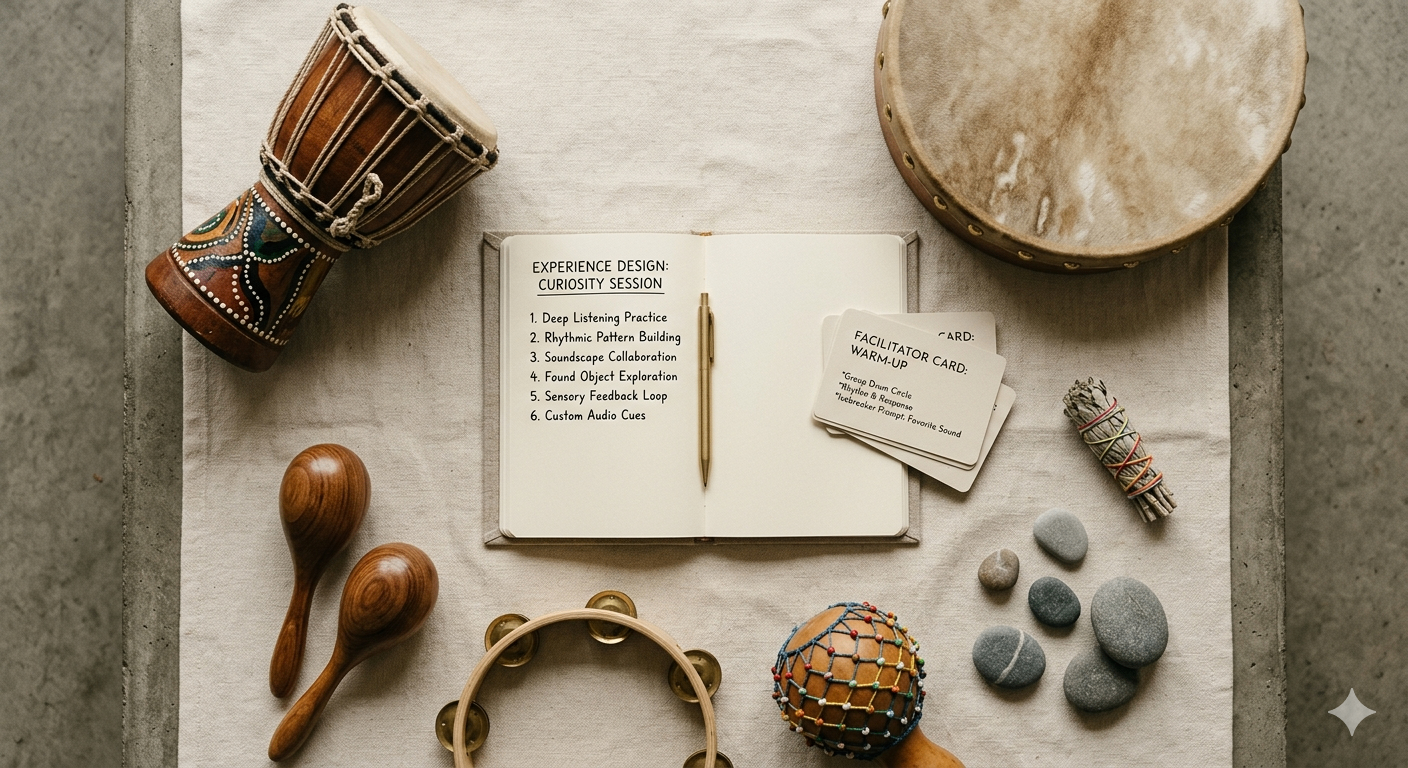 EXPERIENCE DESIGN:
CURIOSITY SESSION
1. Deep Listening Practice
2. Rhythmic Pattern Building
3. Soundscape Collaboration
4. Found Object Exploration
5. Sensory Feedback Loop
6. Custom Audio Cues
CARD:
FACILITATOR CARD:
WARM-UP
*Group Drum Circle
& Response
*Icebreaker Prompt: Favorite Sound